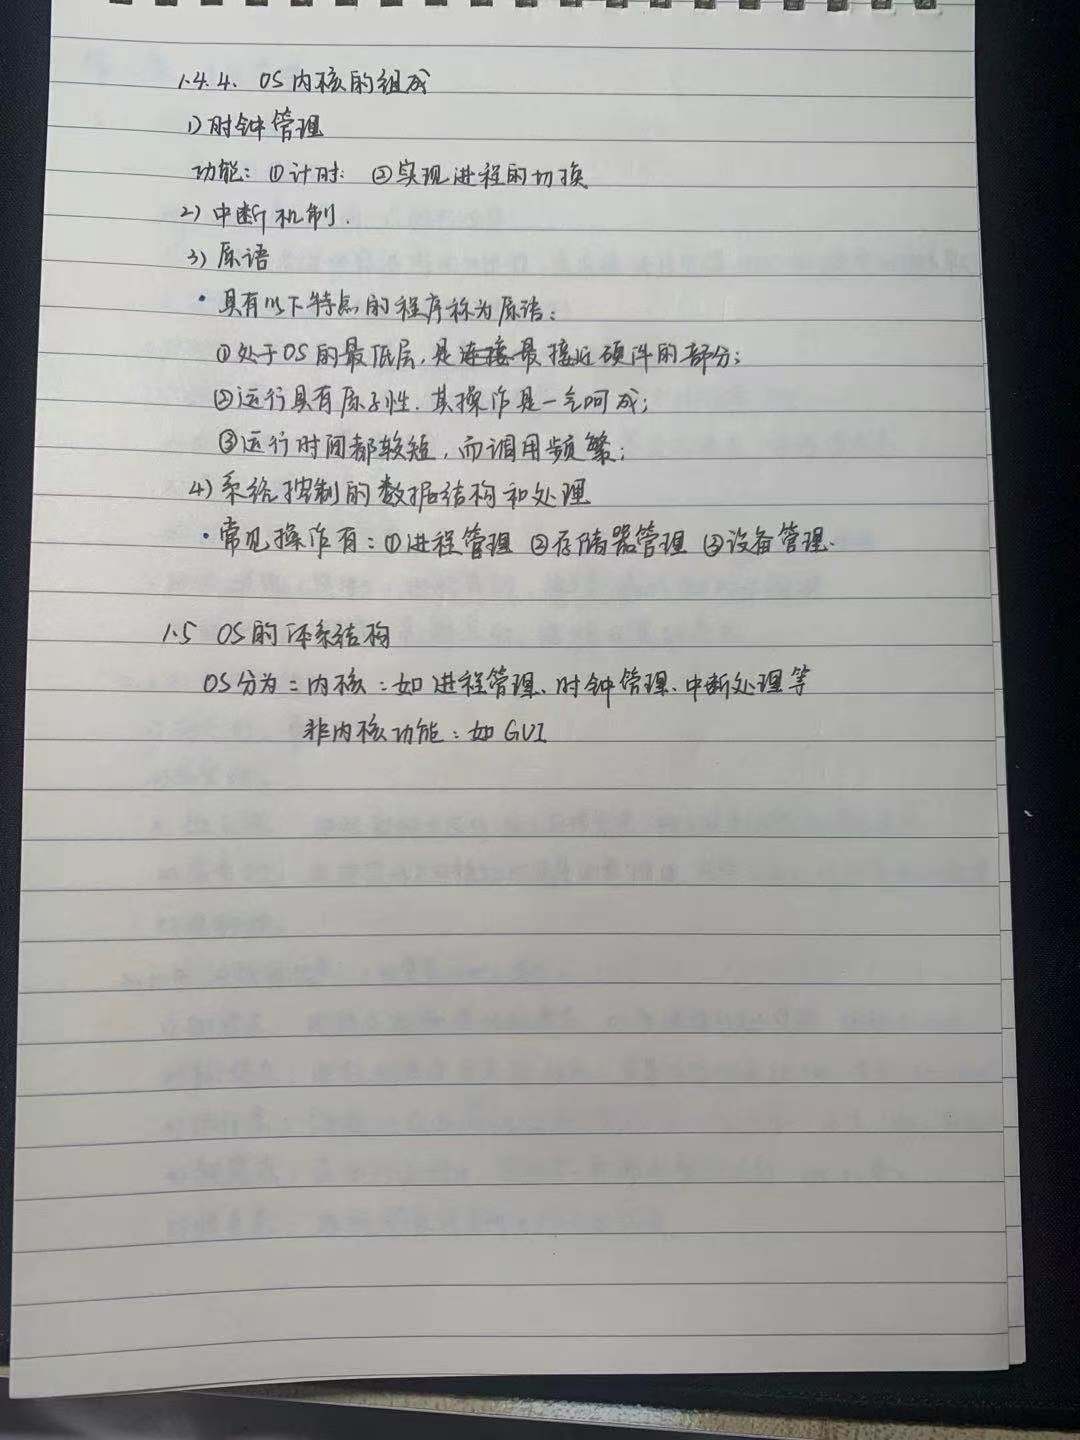 1.4.4. OS内核的组成
1) 时钟管理
功能: ①计时: ②实现进程的切换
2) 中断机制.
3) 原语
· 具有以下特点的程序称为原语:
①处于OS的最低层,是连接最接近硬件的部分;
②运行具有原子性. 其操作是一气呵成;
③运行时间都较短, 而调用频繁;
4) 系统控制的数据结构和处理
· 常见操作有: ①进程管理 ②存储器管理 ③设备管理.
1.5 OS的体系结构
OS分为: 内核: 如进程管理、时钟管理、中断处理等
非内核功能: 如GUI